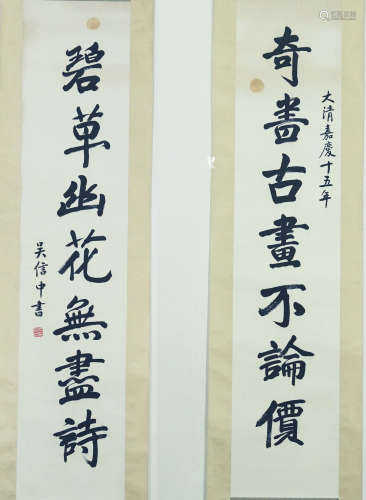 大清嘉慶十五年
奇書古畫不論價
碧草幽花無盡詩
吳信中書